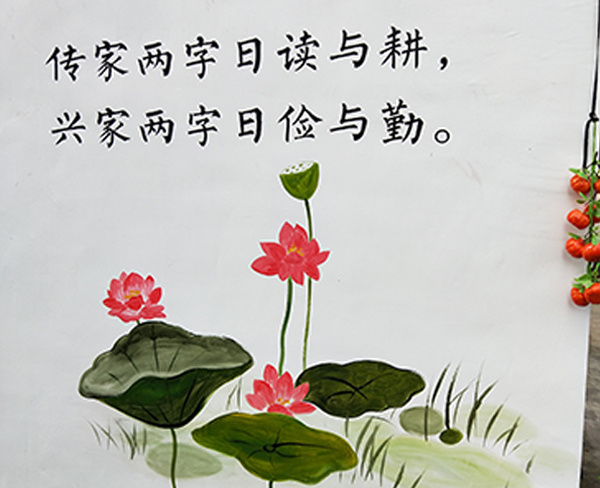 传家两字日读与耕，
兴家两字日俭与勤。